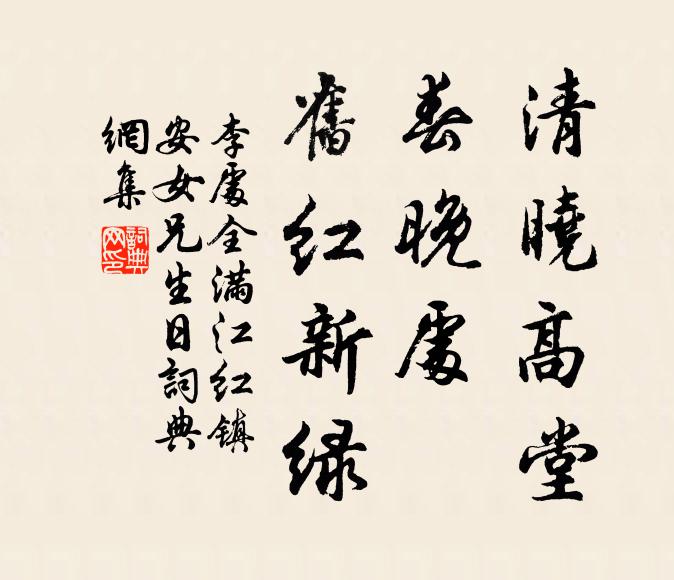 清曉高堂
春晚處
舊紅新綠
李處全滿江紅鎮
安女兄生日詞典
網集
詞典
网印